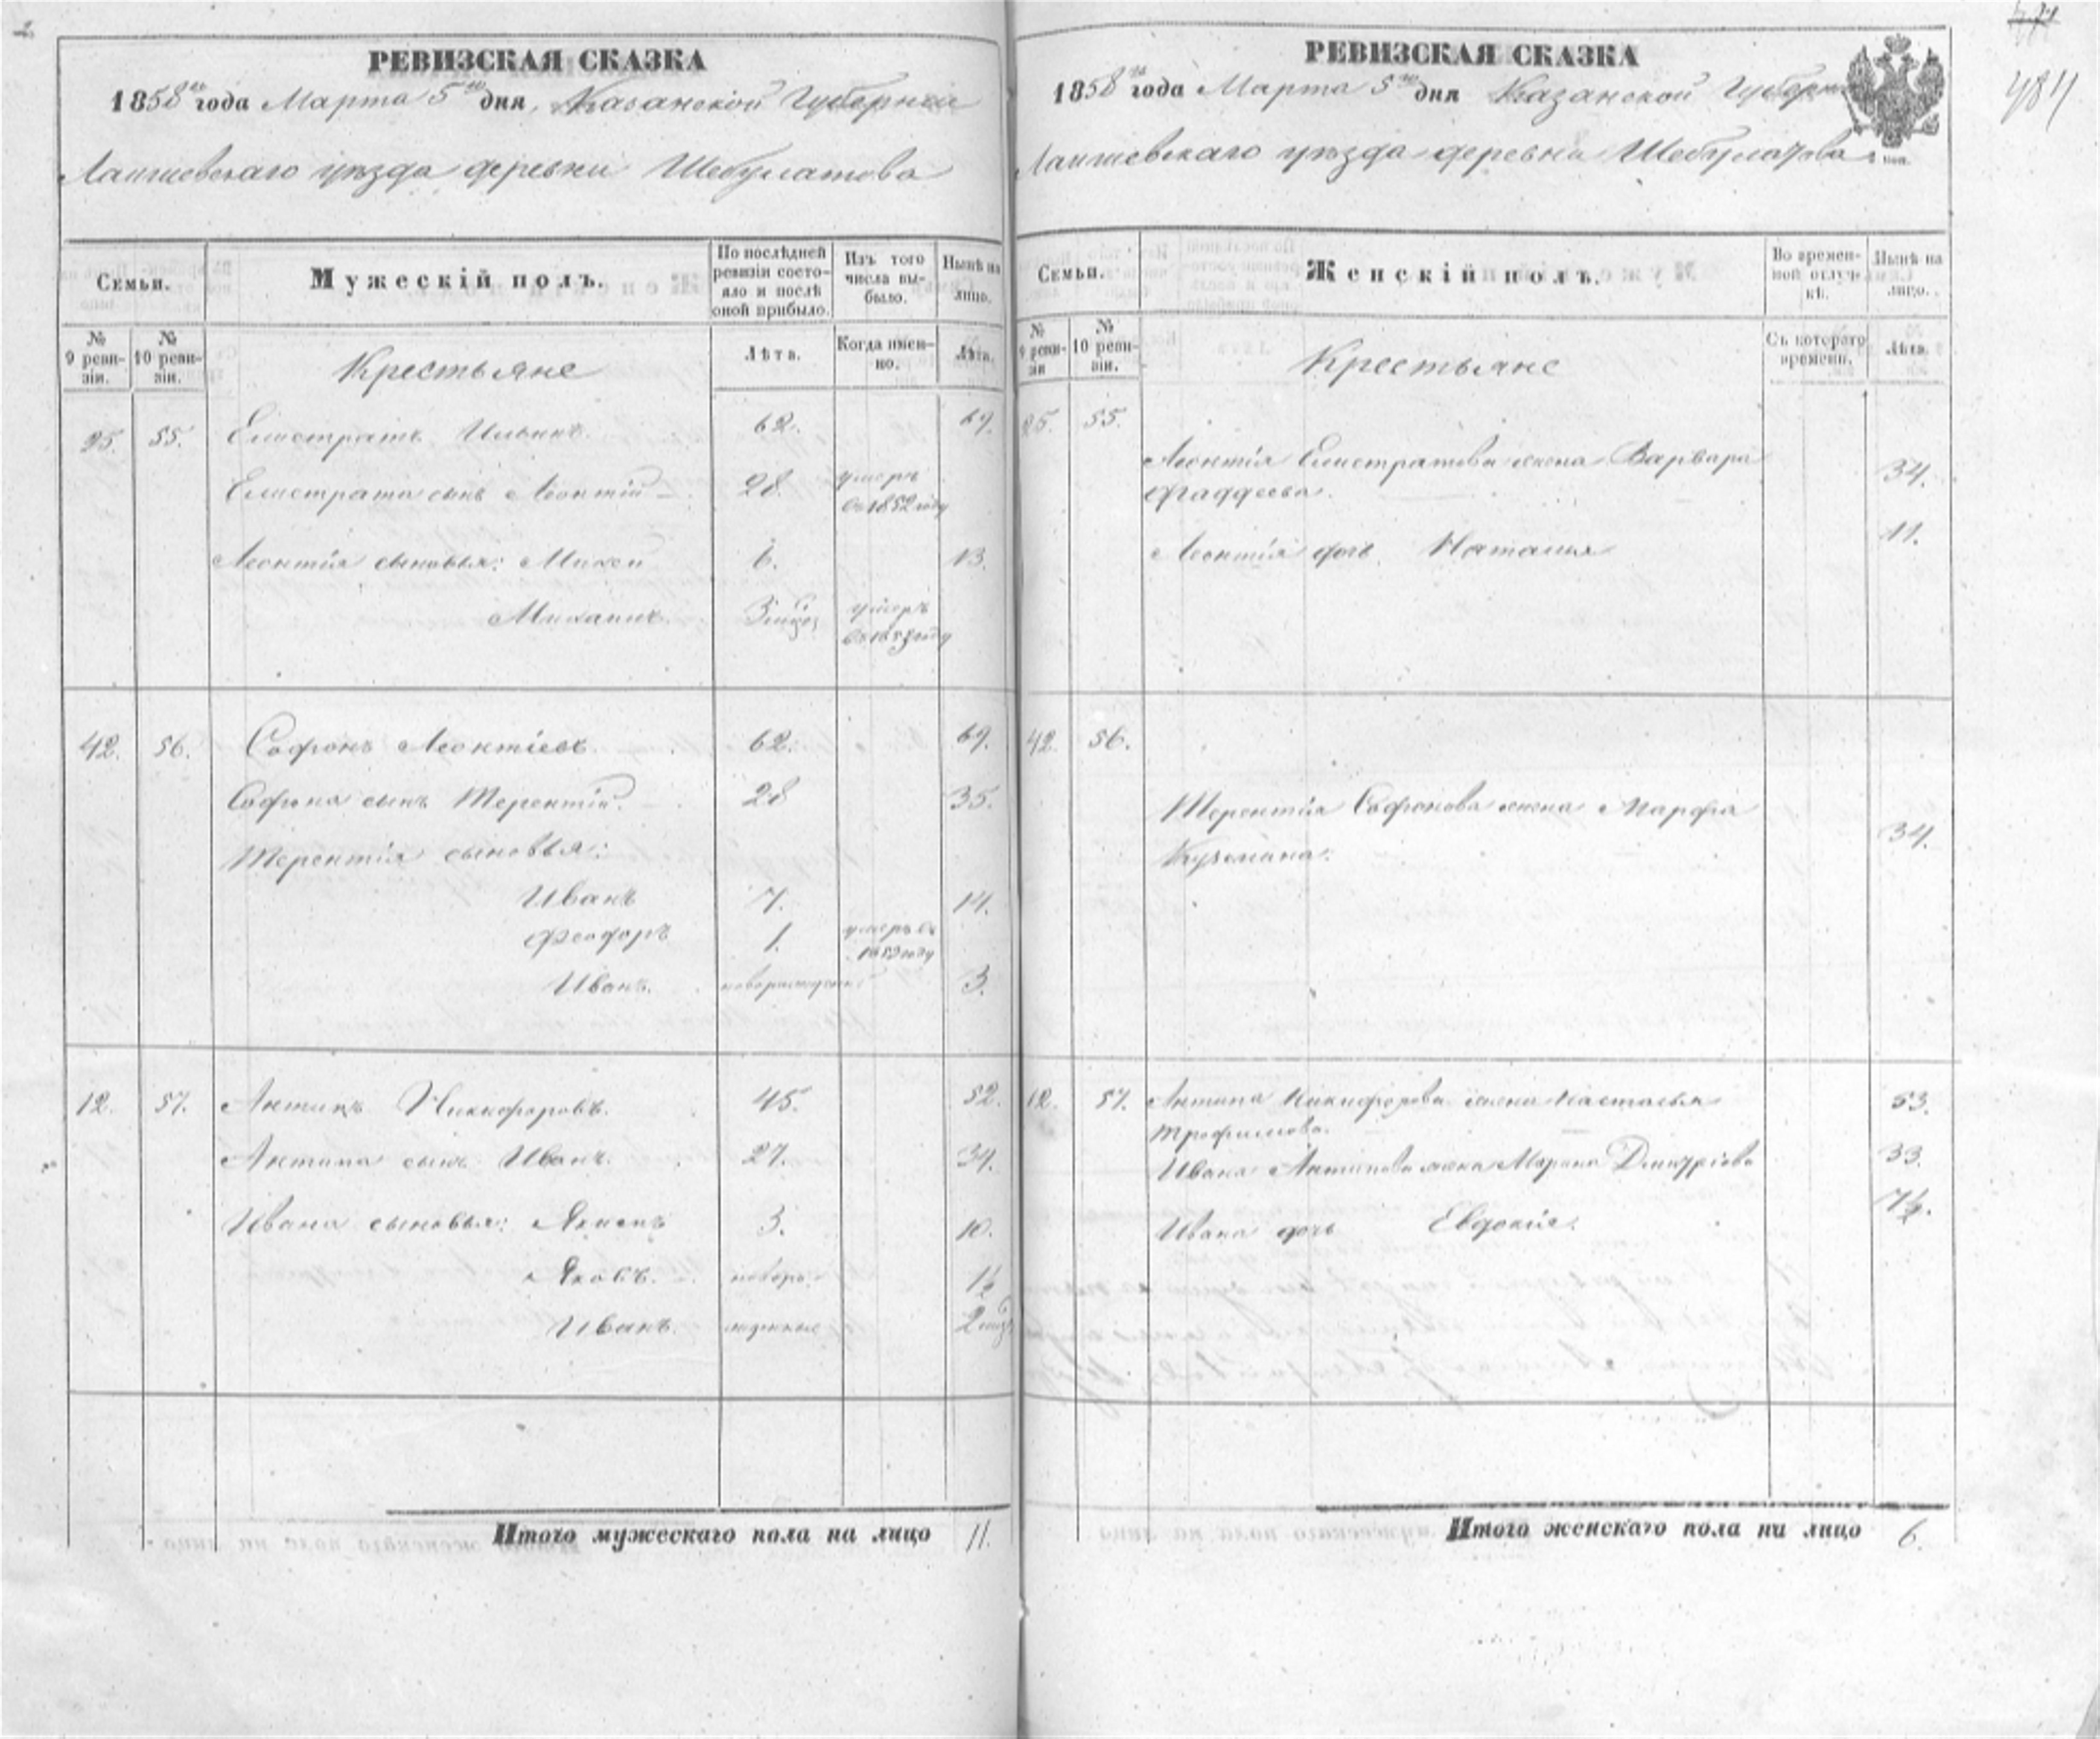 РЕВИЗСКАЯ СКАЗКА
1858го года Марта 5го дня, Казанской Губернии
Лаишевскаго уѣзда деревни Шебулатова
Семьи.
Мужескій полъ.
По послѣдней ревизіи состо-
яло и послѣ
оной прибыло.
Изъ того
числа вы-
было.
Нынѣ на
лицо.
№
9 реви-
зіи.
№
10 реви-
зіи.
Крестьяне
Лѣта.
Когда имен-
но.
Лѣта.
25. 55. Елистратъ Ильинъ. 62. 69.
Елистрата сынъ Леонтій 28. умеръ
въ 1852 году
Леонтія сыновья: Михей 6. 13.
Михаилъ. умеръ
42. 56. Софронъ Леонтіевъ. 62. 69.
Софрона сынъ Терентій. 28 35.
Терентія сыновья:
Иванъ 7. 14.
Феодоръ 1. умеръ въ
1853 году
Иванъ. новорожден. 3.
12. 57. Антипъ Никифоровъ. 45. 52.
Антипа сынъ Иванъ. 27. 34.
Ивана сыновья: Якимъ 3. 10.
Яковъ. новоро-
Иванъ. жденные
Итого мужескаго пола на лицо 11.
484
РЕВИЗСКАЯ СКАЗКА
1858го года Марта 5го дня Казанской Губерніи
Лаишевскаго уѣзда деревни Шебулатова
Семьи.
Женскій полъ.
Во времен-
ной отлуч-
кѣ.
Нынѣ на
лицо.
№
9 реви-
зіи
№
10 реви-
зіи.
Крестьяне
Съ котораго
времени.
Лѣта.
25. 55.
Леонтія Елистратова жена Варвара
Фаддеева. 34.
Леонтія дочь Наталья 11.
42. 56.
Терентія Софронова жена Марфа
Кузмина. 34.
12. 57. Антипа Никифорова жена Настасья 53.
Трофимова.
Ивана Антипова жена Марина Дмитріева 33.
Ивана дочь Евдокія.
Итого женскаго пола на лицо 6.